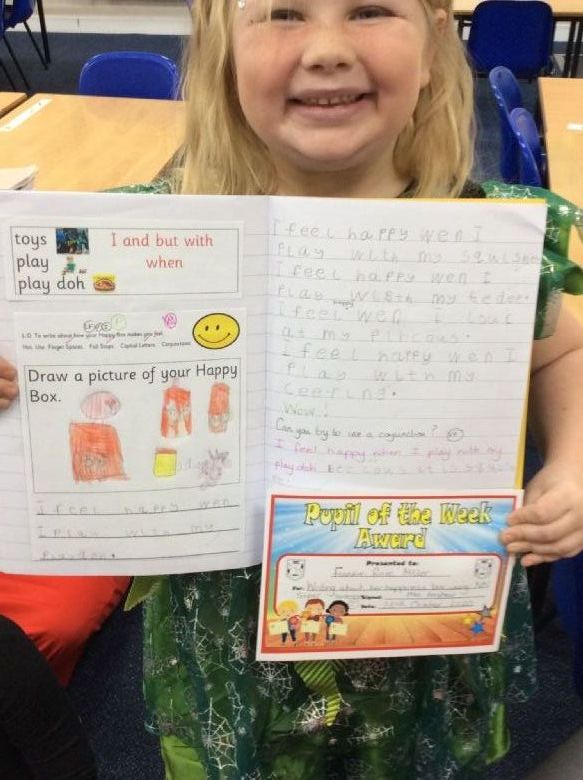 toys
play
play doh
I and but with
when
L.O. To write about how your Happy Box makes you feel.
Use Finger Spaces Full Stops Capital Letters Conjunctions
Draw a picture of your Happy
Box.
I feel happy wen
I play with my
I feel happy wen I
Play with my squishe
I feel happy wen I
Play with my
happy
I feel wen I look
at my
I feel happy wen I
Play with my
Wow!
Can you try to use a conjunction?
I feel happy when I play with my
play doh
Pupil of the Week
Award
Presented to:
For: Writing about her happiness box using
Signed:
Date: